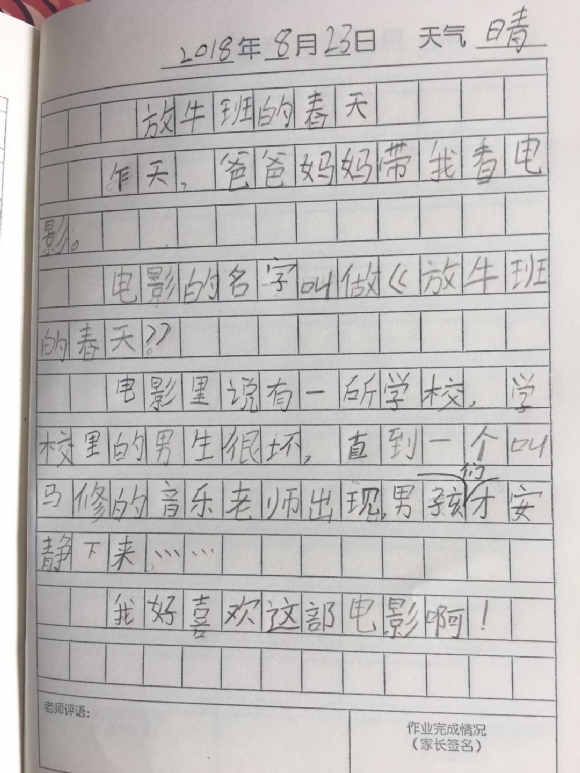 2018年8月23日 天气 晴
放牛班的春天
昨天，爸爸妈妈带我看电
影。
电影的名字叫做《放牛班
的春天》
电影里说有一所学校，学
校里的男生很坏，直到一个叫
马修的音乐老师出现，男孩们才安
静下来……
我好喜欢这部电影啊！
老师评语：
作业完成情况
（家长签名）